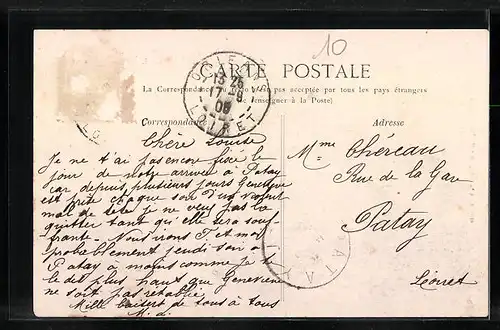 10
CARTE POSTALE
La Correspondance au verso n'est pas acceptée par tous les pays étrangers
(Se renseigner à la Poste)
Correspondance
Adresse
ORLEANS
13 25
17 -8
06
LOIRET
Chère Louise
Je ne t'ai pas encor fixé le
jour de notre arrivée à Patay
car depuis plusieurs jours Geneviève
est prise chaque soir d'un violent
mal de tête je ne veux pas la
quitter tant qu'elle sera souf-
frante. Nous irons
probablement lundi soir à
Patay à moins comme je te
le dit plus haut que Geneviève
ne soit pas rétablie
Mille baisers de tous à tous
M. d.
Mme Chéreau
Rue de la Gare
Patay
Loiret
PATAY